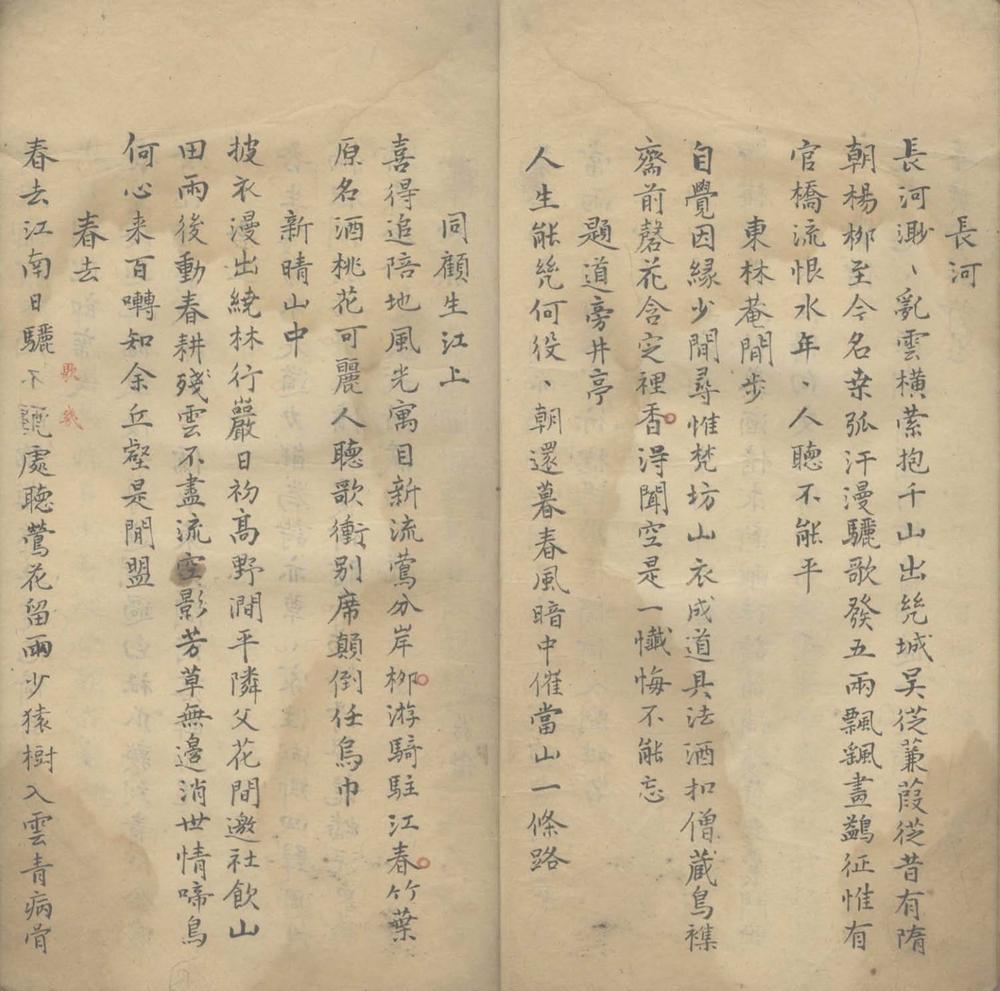 長河
長河渺、亂雲橫縈抱千山出㡬城吴從蒹葭從昔有隋
朝楊柳至今名桒弧汗漫驪歌發五兩飄颻畫鷁征惟有
官橋流恨水年、人聽不能平
東林菴閒步
自覺因緣少閒尋惟梵坊山衣成道具法酒扣僧藏鳥襍
齋前磬花含定裡香淂聞空是一懴悔不能忘
題道旁井亭
人生能㡬何役、朝還暮春風暗中催當山一條路
同顧生江上
喜得追陪地風光寓目新流鶯分岸柳游騎駐江春竹葉
原名酒桃花可麗人聽歌衝别席顛倒任烏巾
新晴山中
披衣漫出繞林行巖日初髙野澗平隣父花間邀社飲山
田雨後動春耕殘雲不盡流空影芳草無邊消世情啼鳥
何心来百囀知余丘壑是閒盟
春去
春去江南日驪不處聽鶯花留雨少猿樹入雲青病骨
歌